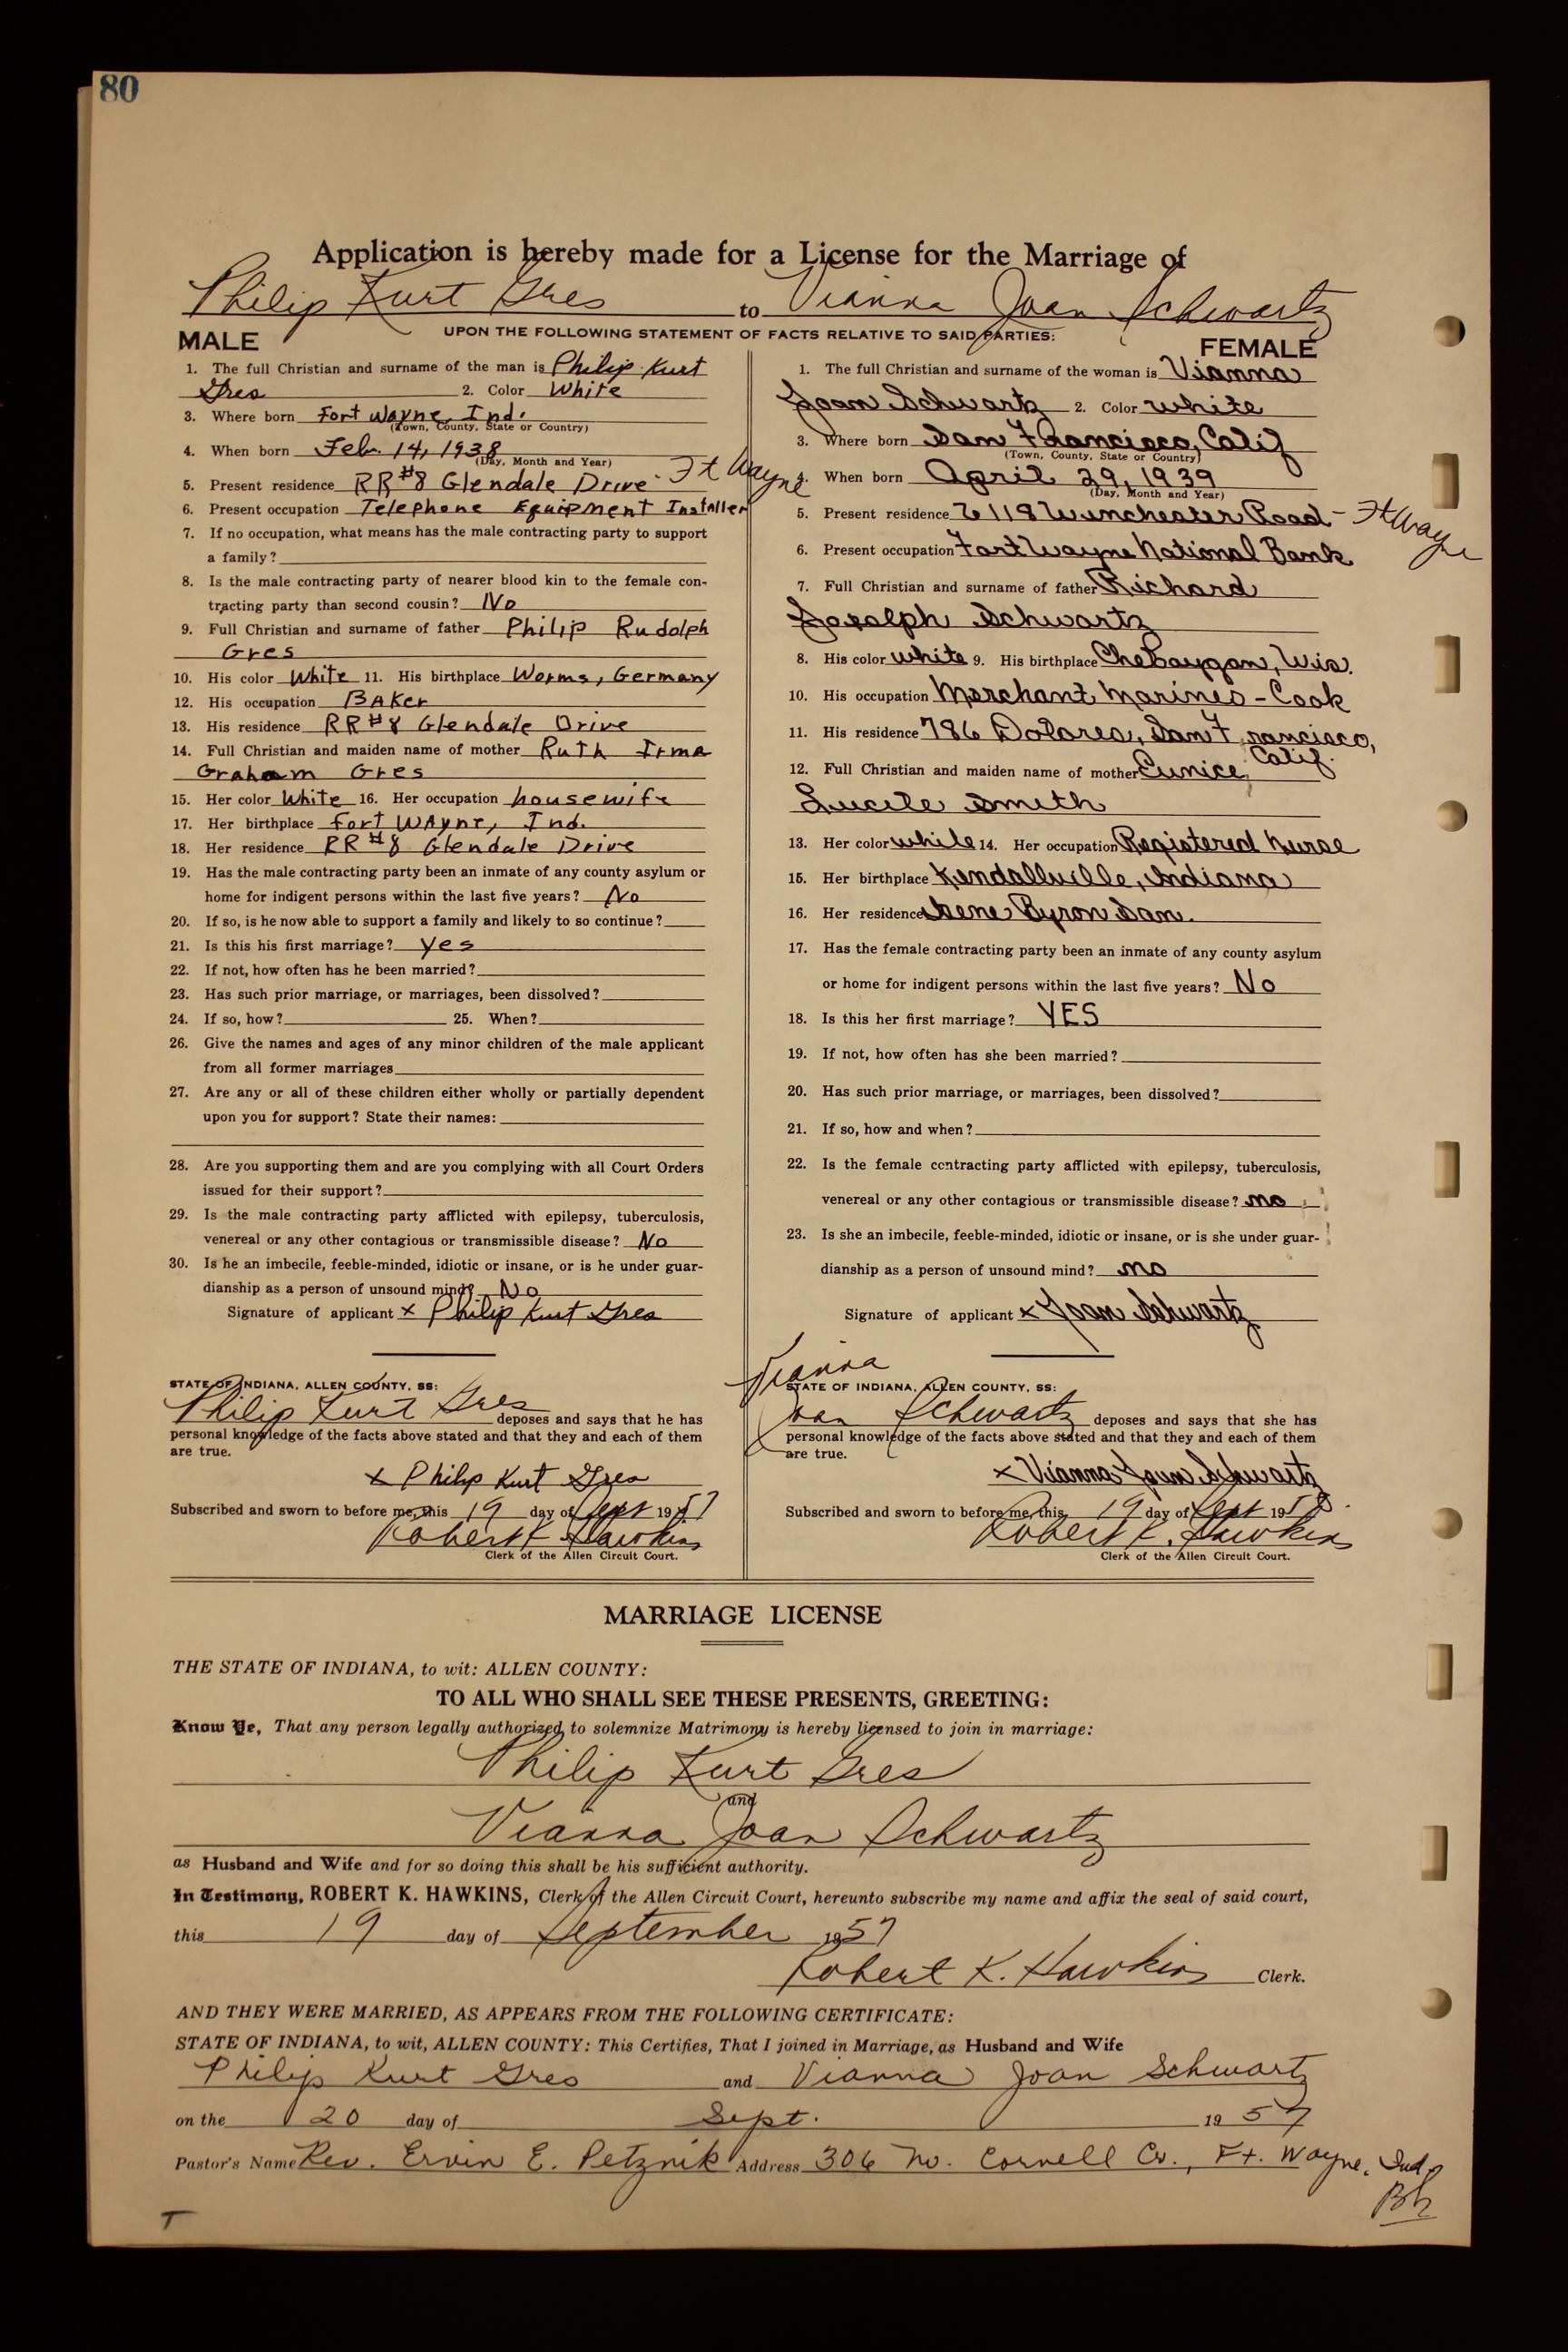 80
Application is hereby made for a License for the Marriage of
Philip Kurt Gres to Vianna Joan Schwartz
UPON THE FOLLOWING STATEMENT OF FACTS RELATIVE TO SAID PARTIES:
MALE
1. The full Christian and surname of the man is Philip Kurt
Gres 2. Color White
3. Where born Fort Wayne, Ind.
(Town, County, State or Country)
4. When born Feb. 14, 1938
(Day, Month and Year)
5. Present residence RR#8 Glendale Drive - Ft Wayne
6. Present occupation Telephone Equipment Installer
7. If no occupation, what means has the male contracting party to support
a family?
8. Is the male contracting party of nearer blood kin to the female con-
tracting party than second cousin? No
9. Full Christian and surname of father Philip Rudolph
Gres
10. His color White 11. His birthplace Worms, Germany
12. His occupation Baker
13. His residence RR#8 Glendale Drive
14. Full Christian and maiden name of mother Ruth Irma
Graham Gres
15. Her color White 16. Her occupation housewife
17. Her birthplace Fort Wayne, Ind.
18. Her residence RR#8 Glendale Drive
19. Has the male contracting party been an inmate of any county asylum or
home for indigent persons within the last five years? No
20. If so, is he now able to support a family and likely to so continue?
21. Is this his first marriage? yes
22. If not, how often has he been married?
23. Has such prior marriage, or marriages, been dissolved?
24. If so, how? 25. When?
26. Give the names and ages of any minor children of the male applicant
from all former marriages
27. Are any or all of these children either wholly or partially dependent
upon you for support? State their names:
28. Are you supporting them and are you complying with all Court Orders
issued for their support?
29. Is the male contracting party afflicted with epilepsy, tuberculosis,
venereal or any other contagious or transmissible disease? No
30. Is he an imbecile, feeble-minded, idiotic or insane, or is he under guar-
dianship as a person of unsound mind? No
Signature of applicant x Philip Kurt Gres
STATE OF INDIANA, ALLEN COUNTY, SS:
Philip Kurt Gres deposes and says that he has
personal knowledge of the facts above stated and that they and each of them
are true.
x Philip Kurt Gres
Subscribed and sworn to before me, this 19 day of Sept 1957
Robert K Hawkins
Clerk of the Allen Circuit Court.
FEMALE
1. The full Christian and surname of the woman is Vianna
Joan Schwartz 2. Color white
3. Where born San Francisco, Calif
(Town, County, State or Country)
4. When born April 29, 1939
(Day, Month and Year)
5. Present residence 6118 Winchester Road - Ft Wayne
6. Present occupation Fort Wayne National Bank
7. Full Christian and surname of father Richard
Joseph Schwartz
8. His color white 9. His birthplace Cheboygan, Wis.
10. His occupation Merchant Marines - Cook
11. His residence 786 Dolores, San Francisco,
Calif.
12. Full Christian and maiden name of mother Eunice
Lucile Smith
13. Her color white 14. Her occupation Registered Nurse
15. Her birthplace Kendallville, Indiana
16. Her residence Irene Byron San.
17. Has the female contracting party been an inmate of any county asylum
or home for indigent persons within the last five years? No
18. Is this her first marriage? YES
19. If not, how often has she been married?
20. Has such prior marriage, or marriages, been dissolved?
21. If so, how and when?
22. Is the female contracting party afflicted with epilepsy, tuberculosis,
venereal or any other contagious or transmissible disease? no
23. Is she an imbecile, feeble-minded, idiotic or insane, or is she under guar-
dianship as a person of unsound mind? no
Signature of applicant x Joan Schwartz
Vianna
STATE OF INDIANA, ALLEN COUNTY, SS:
Joan Schwartz deposes and says that she has
personal knowledge of the facts above stated and that they and each of them
are true.
x Vianna Joan Schwartz
Subscribed and sworn to before me, this 19 day of Sept 195
Robert K. Hawkins
Clerk of the Allen Circuit Court.
MARRIAGE LICENSE
THE STATE OF INDIANA, to wit: ALLEN COUNTY:
TO ALL WHO SHALL SEE THESE PRESENTS, GREETING:
Know Ye, That any person legally authorized to solemnize Matrimony is hereby licensed to join in marriage:
Philip Kurt Gres
and
Vianna Joan Schwartz
as Husband and Wife and for so doing this shall be his sufficient authority.
In Testimony, ROBERT K. HAWKINS, Clerk of the Allen Circuit Court, hereunto subscribe my name and affix the seal of said court,
this 19 day of September 1957
Robert K. Hawkins Clerk.
AND THEY WERE MARRIED, AS APPEARS FROM THE FOLLOWING CERTIFICATE:
STATE OF INDIANA, to wit, ALLEN COUNTY: This Certifies, That I joined in Marriage, as Husband and Wife
Philip Kurt Gres and Vianna Joan Schwartz
on the 20 day of Sept. 1957
Pastor's Name Rev. Ervin E. Petznik Address 306 W. Cornell Cr., Ft. Wayne, Ind
T